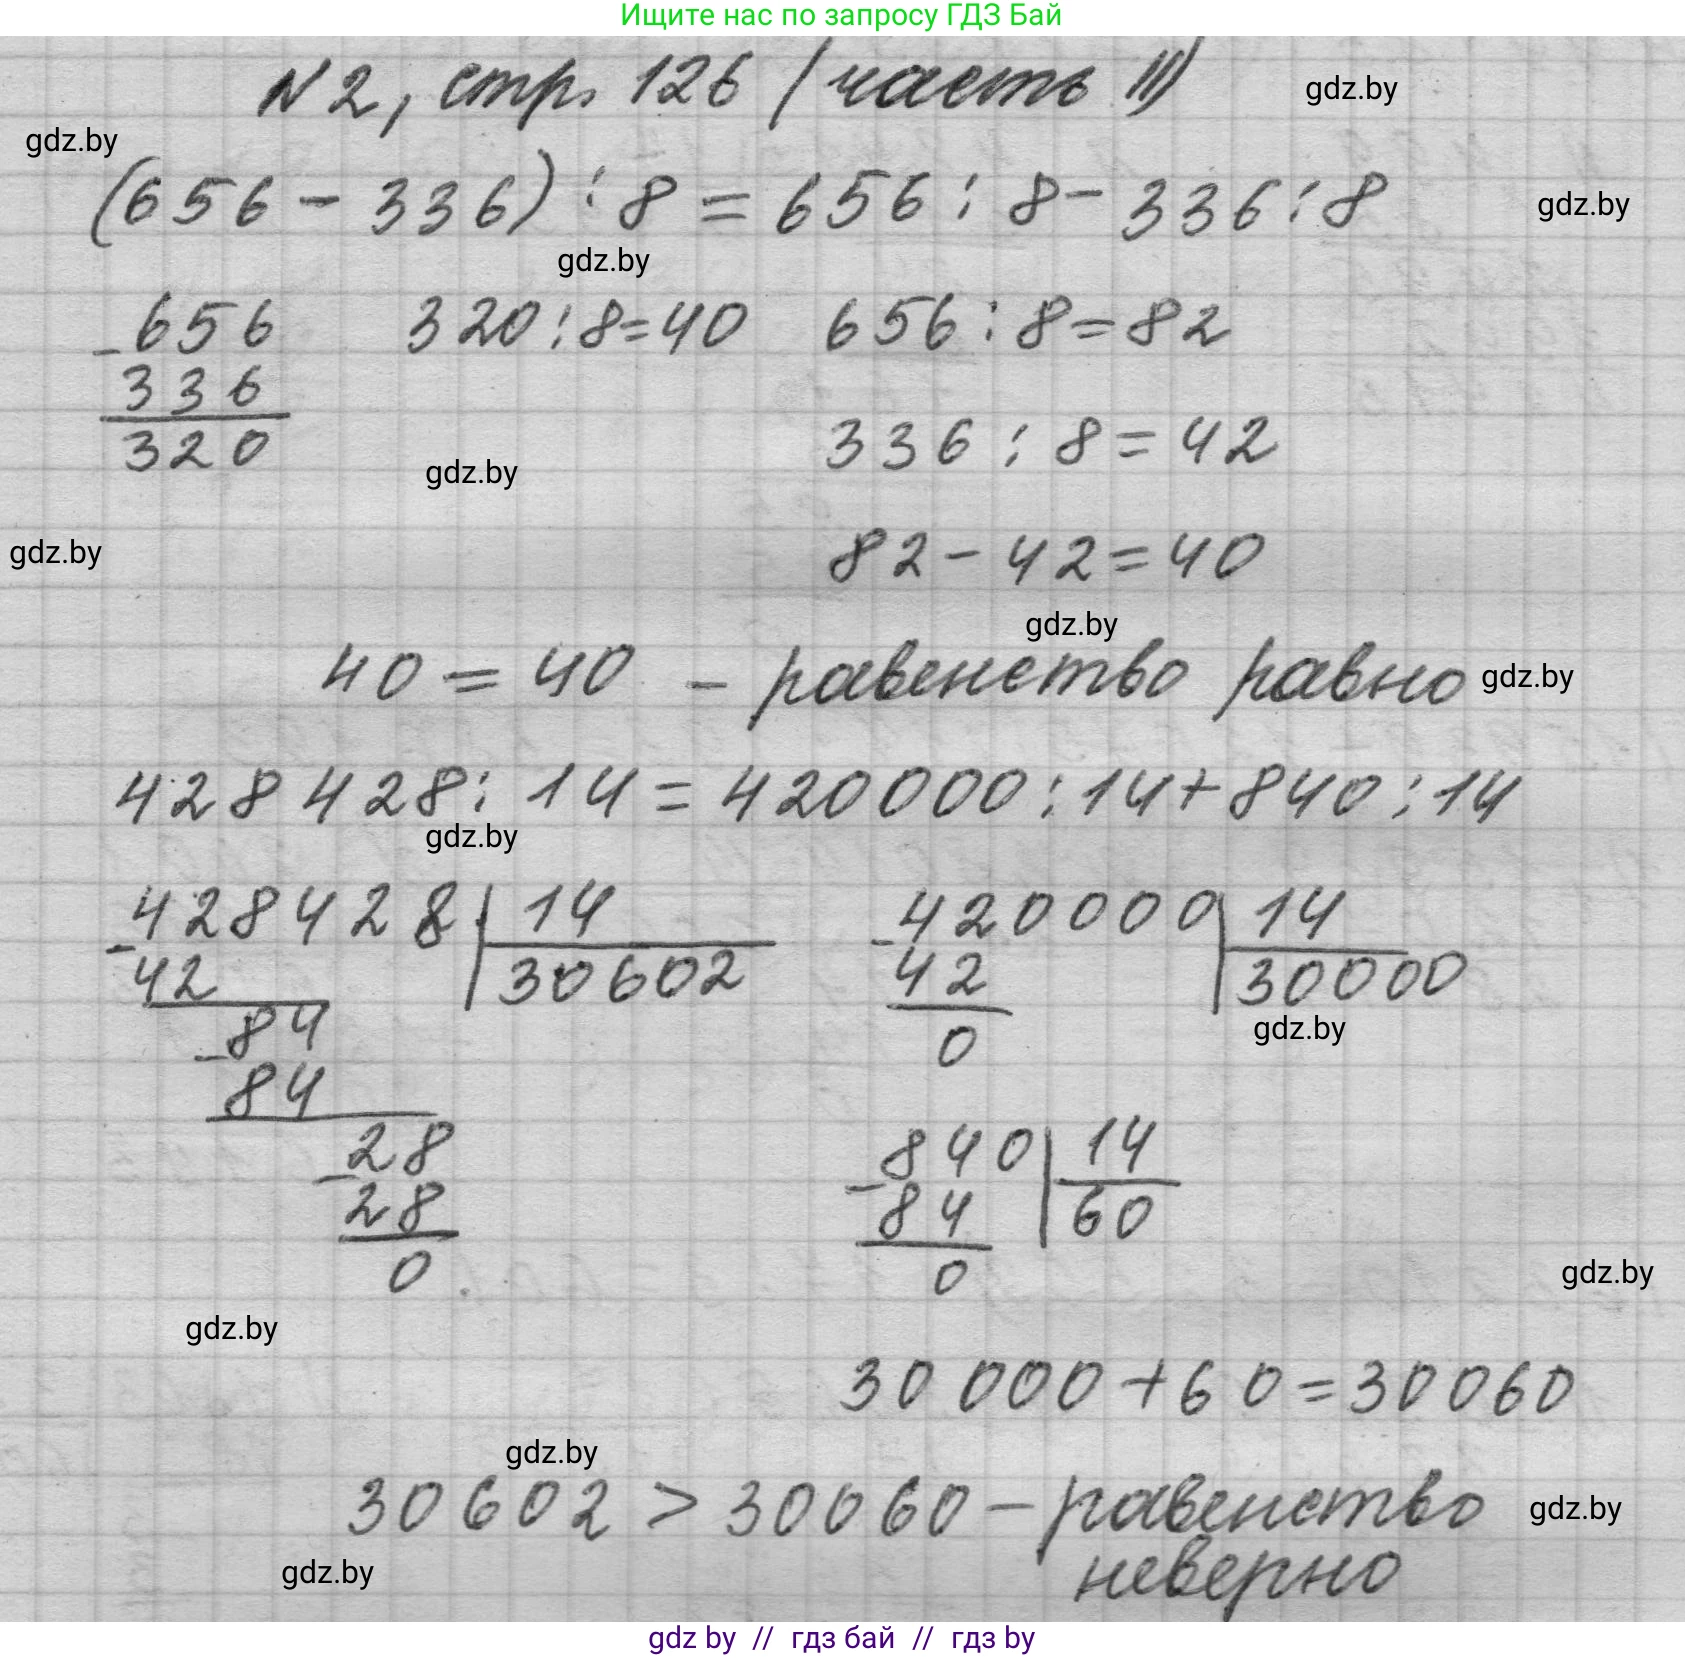 Ищите нас по запросу ГДЗ Бай
N2, стр. 126 (часть II)
gdz.by
gdz.by
(656 - 336) : 8 = 656 : 8 - 336 : 8
gdz.by
gdz.by
- 656
336
320
320 : 8 = 40
656 : 8 = 82
336 : 8 = 42
gdz.by
82 - 42 = 40
gdz.by
gdz.by
40 = 40 - равенство равно
gdz.by
428 428 : 14 = 420000 : 14 + 840 : 14
gdz.by
- 428428 | 14
42 | 30602
- 84
84
- 28
28
0
- 420000 | 14
42 | 30000
0
gdz.by
- 840 | 14
84 | 60
0
gdz.by
gdz.by
30 000 + 60 = 30060
gdz.by
30602 > 30060 - равенство
неверно
gdz.by
gdz.by
gdz by // гдз бай // гдз by